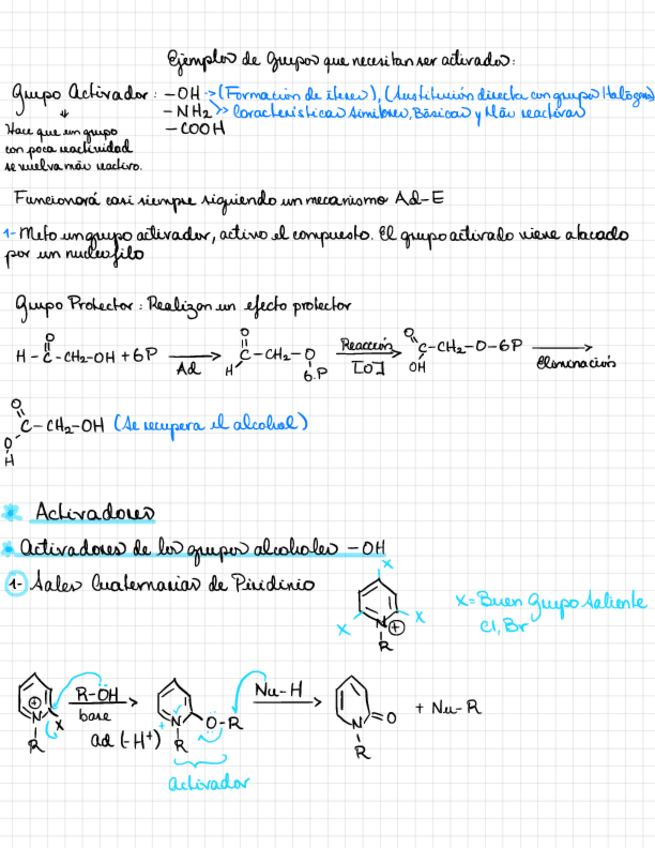 Ejemplos de Grupos que necesitan ser activados:
Grupo Activador: -OH -> (Formación de ésteres), (Sustitución directa con grupos Halógenos)
-NH2 >> Características Similares, Básicas y Más reactivas
-COOH
Hace que un grupo
con poca reactividad
se vuelva más reactivo.
Funcionará casi siempre siguiendo un mecanismo Ad-E
1- Meto un grupo activador, activo el compuesto. El grupo activado viene atacado
por un nucleófilo
Grupo Protector: Realizan un efecto protector
H-C-CH2-OH + GP Ad C-CH2-O Reacción [O] C-CH2-O-GP Eliminación
O O O
H G.P OH
O
C-CH2-OH (Se recupera el alcohol)
O
H
Activadores
Activadores de los grupos alcoholes -OH
1- Sales Cuaternarias de Piridinio
X X X N + R
X = Buen Grupo Saliente
Cl, Br
+ N X R R-OH base ad (-H+) N O-R R Nu-H N =O R + Nu-R
activador